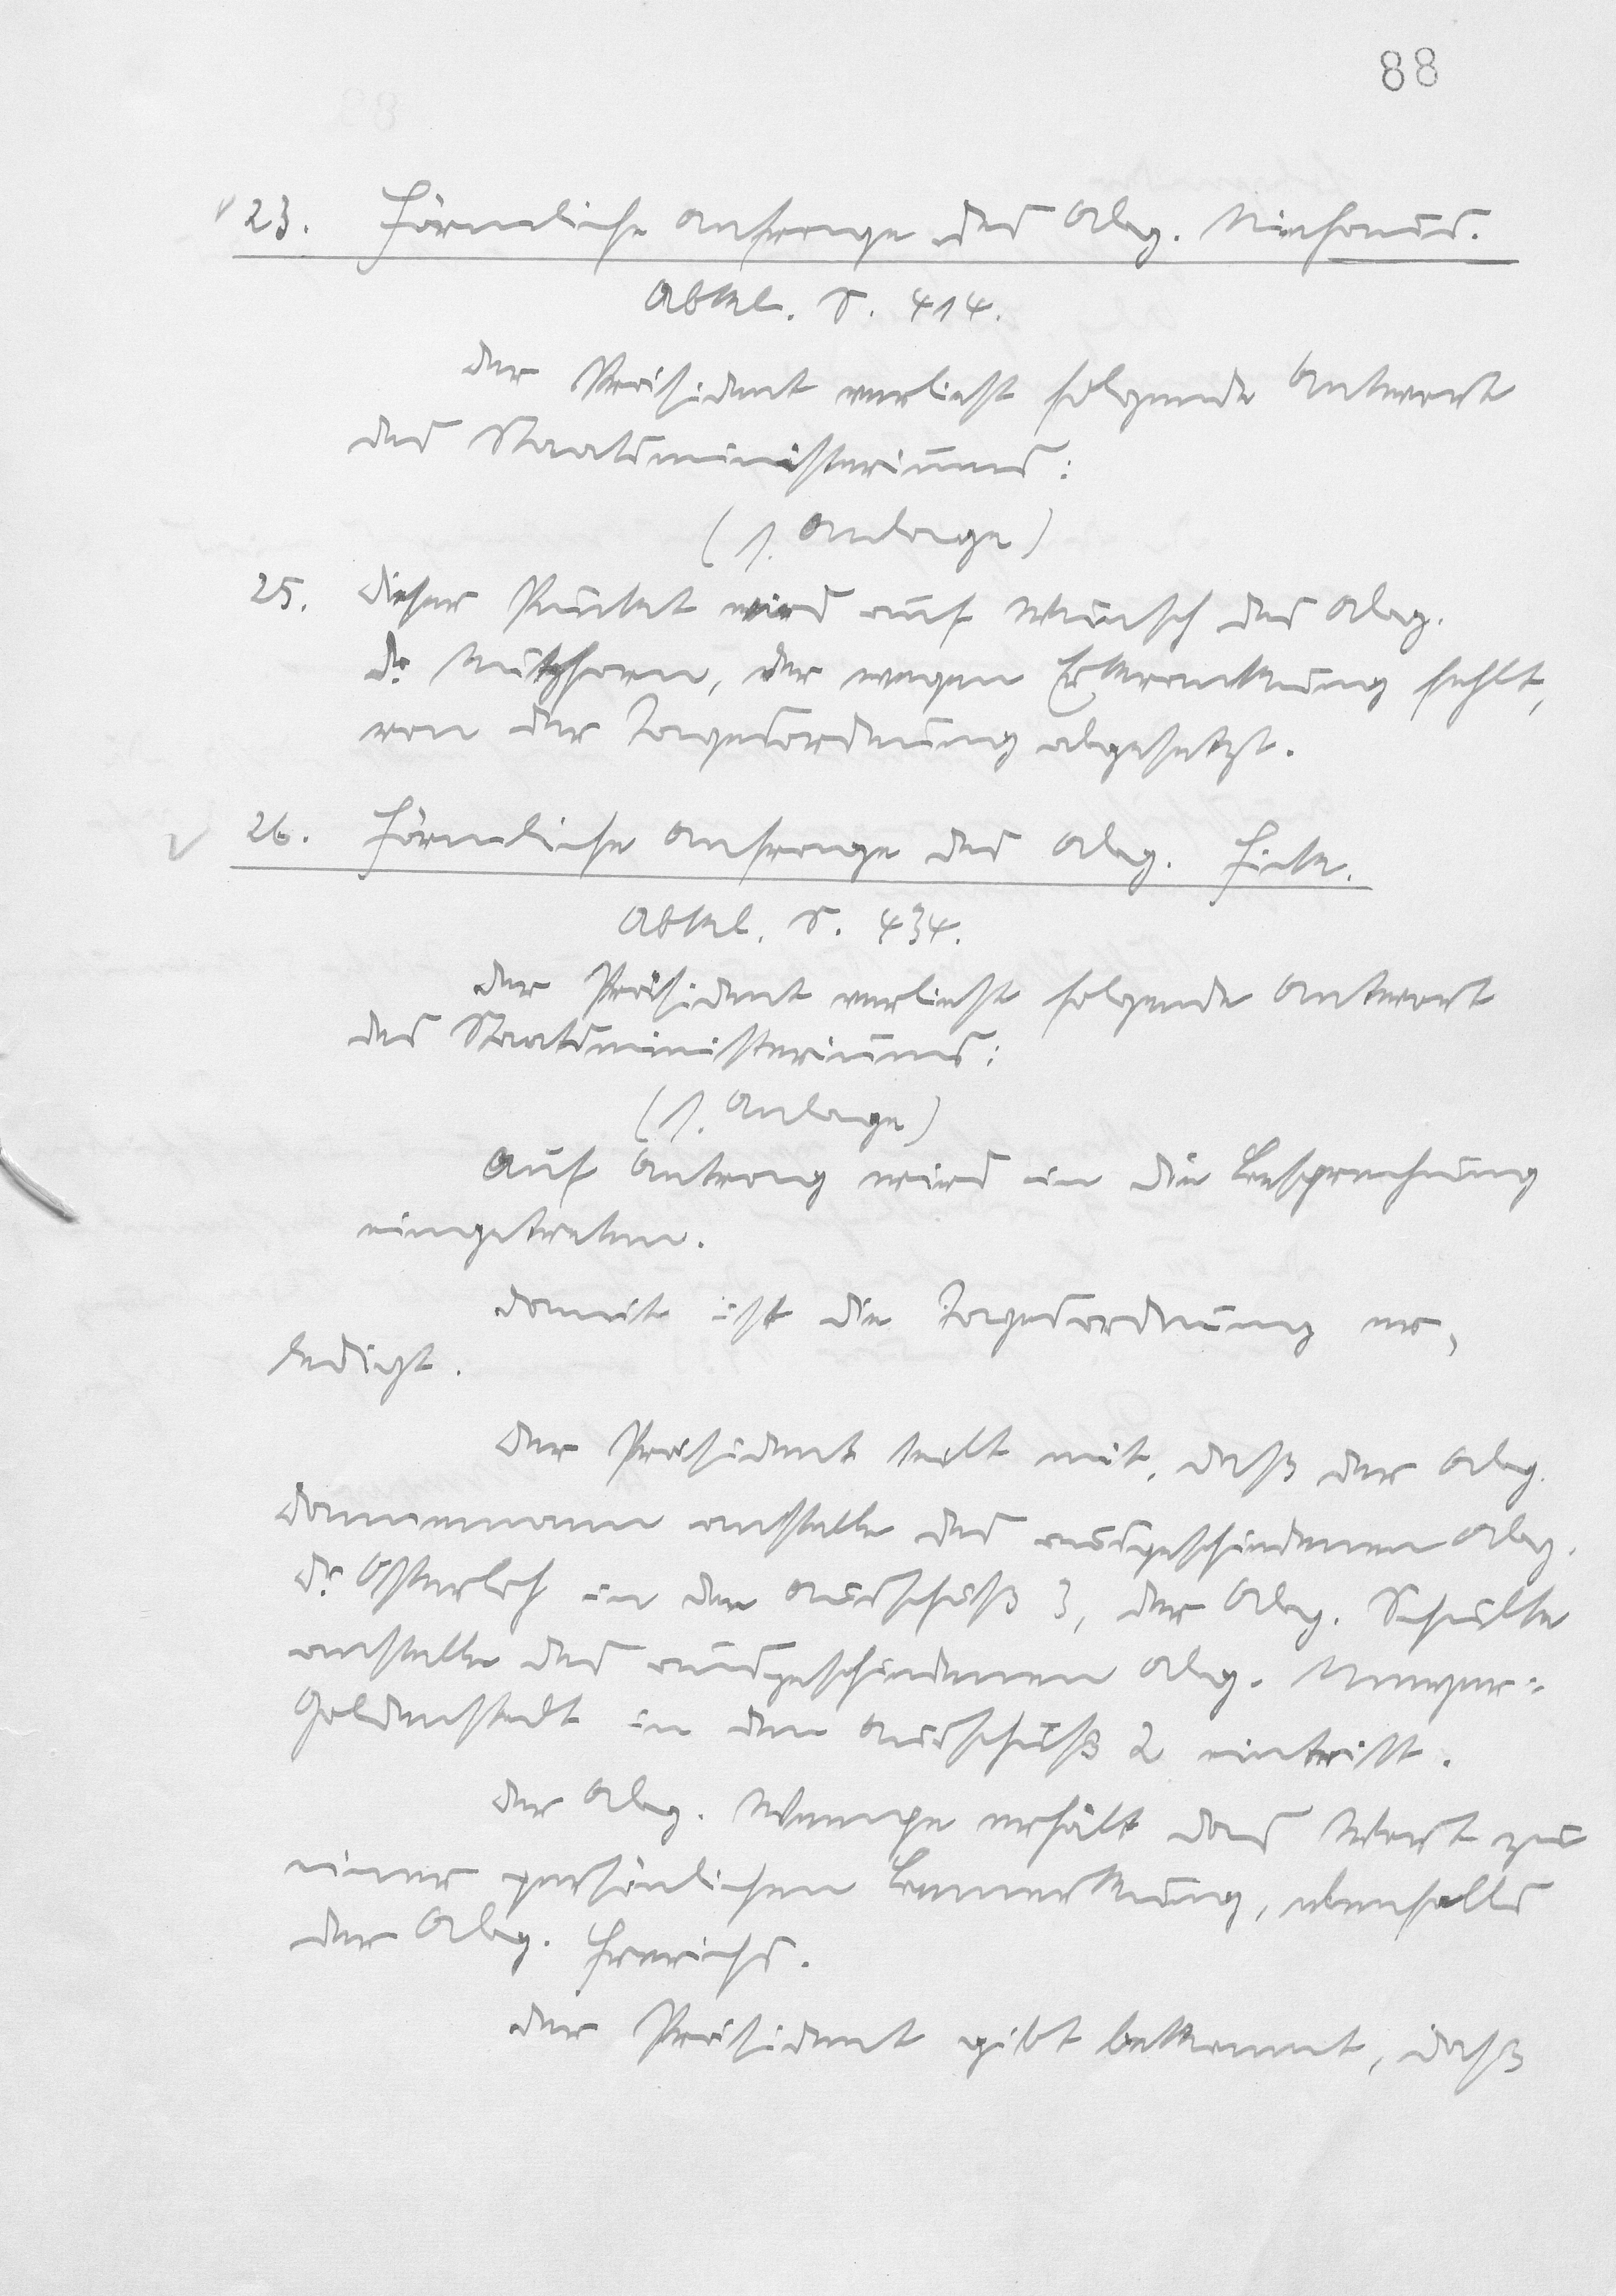 88
23. Förmliche Anfrage des Abg. Niehaus.
Abkl. S. 414.
Der Präsident verliest folgende Antwort
des Staatsministeriums:
(s. Anlage)
25. Dieser Punkt wird auf Wunsch des Abg.
Dr. Mützhorn, der wegen Erkrankung fehlt,
von der Tagesordnung abgesetzt.
26. Förmliche Anfrage des Abg. Fick.
Abkl. S. 434.
Der Präsident verliest folgende Antwort
des Staatsministeriums:
(s. Anlage)
Auf Antrag wird in die Besprechung
eingetreten.
Damit ist die Tagesordnung er-
ledigt.
Der Präsident teilt mit, daß der Abg.
Dannemann anstelle des ausgeschiedenen Abg.
Dr. Osterloh in den Ausschuß 3, der Abg. Schulte
anstelle des ausgeschiedenen Abg. Meyer-
Goldenstedt in den Ausschuß 2 eintritt.
Der Abg. Wempe erhält das Wort zu
einer persönlichen Bemerkung, ebenfalls
der Abg. Frerichs.
Der Präsident gibt bekannt, daß